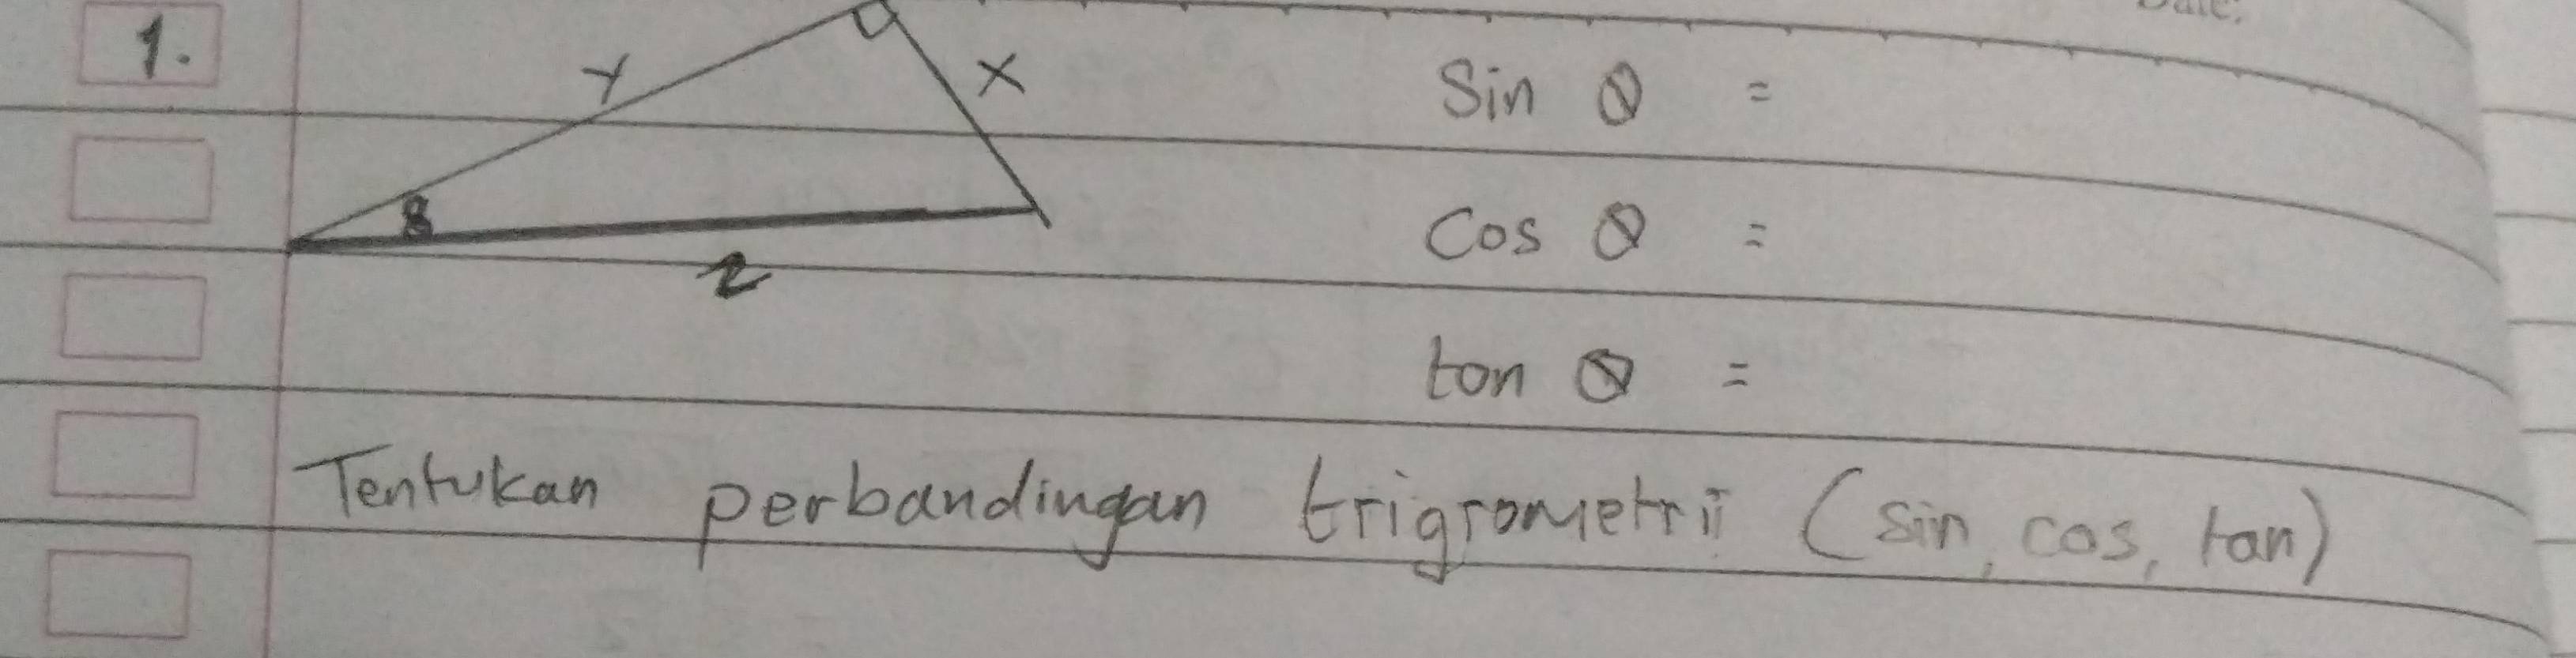 1.
Y
X
θ
z
Sin θ =
Cos θ =
tan θ =
Tentukan perbandingan trigrometrii (sin, cos, tan)